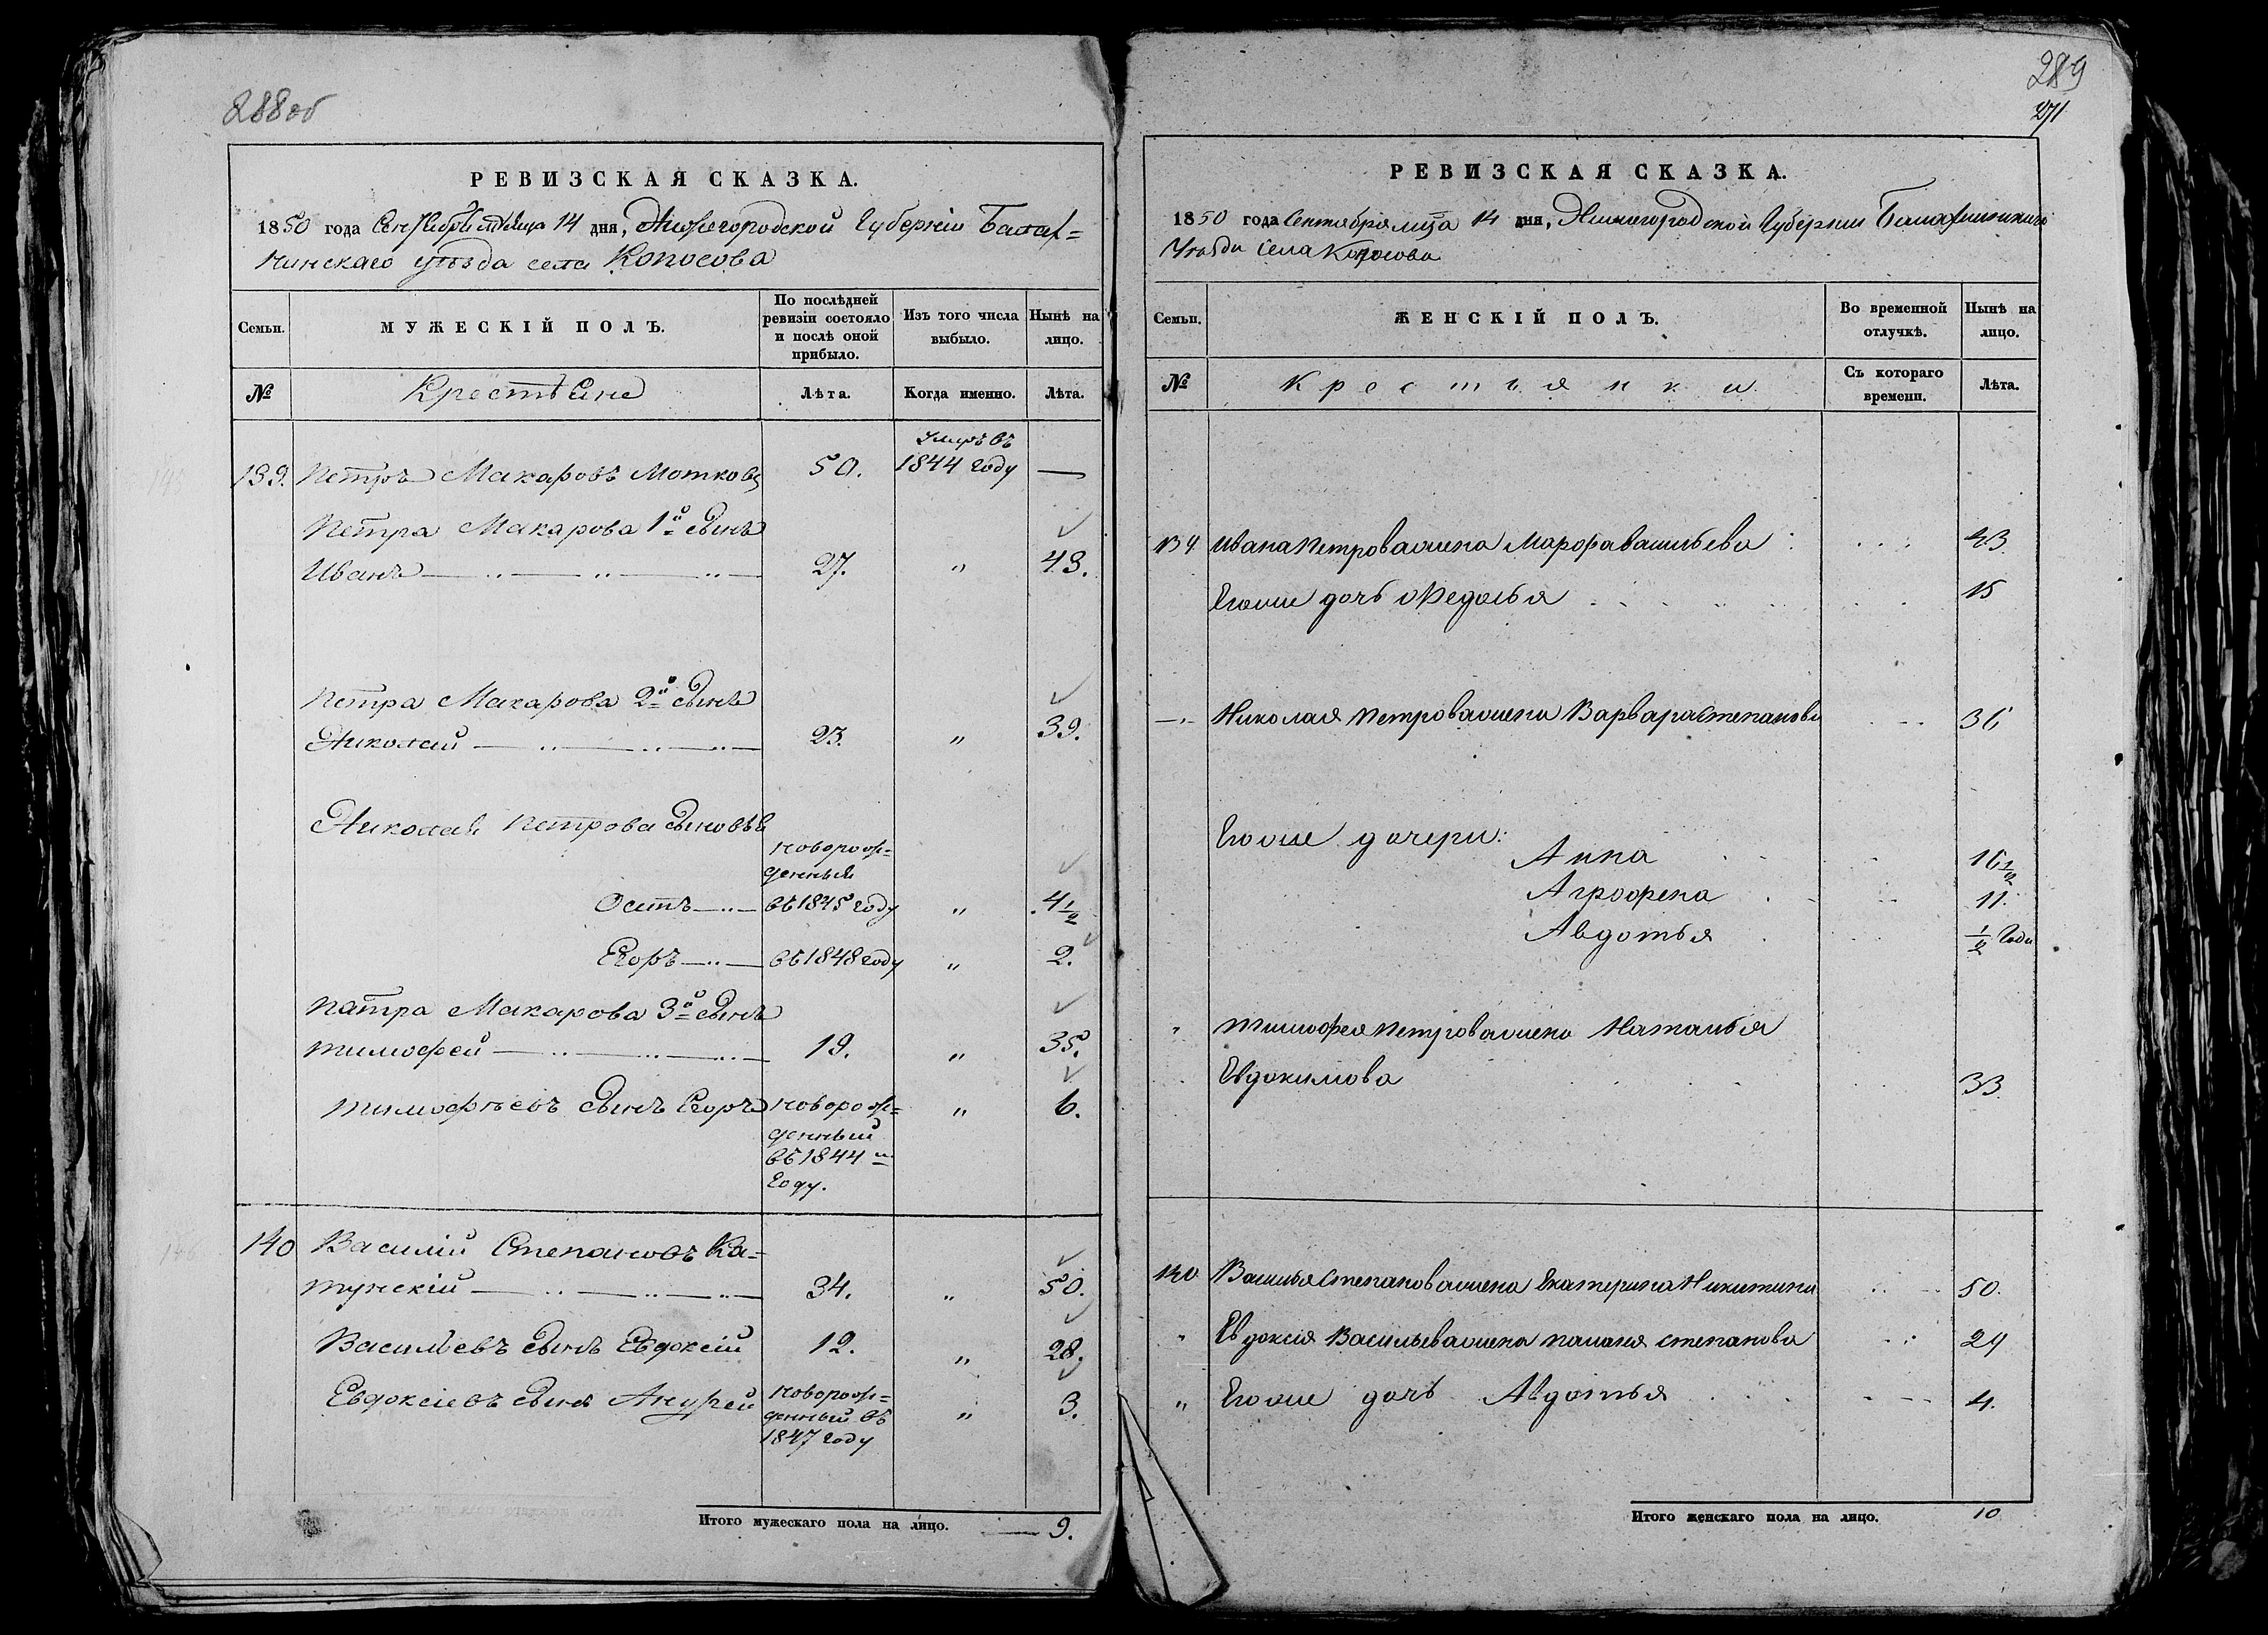 288об
РЕВИЗСКАЯ СКАЗКА.
1850 года Сентября мѣсяца 14 дня, Нижегородской Губерніи Балах=
нинскаго уѣзда села Копосова
Семьи.
МУЖЕСКІЙ ПОЛЪ.
По послѣдней ревизіи состояло и послѣ оной прибыло.
Изъ того числа выбыло.
Нынѣ на лицо.
№
Крестьяне
Лѣта.
Когда именно.
Лѣта.
умръ въ
139. Петръ Макаровъ Мотковъ 50. 1844 году —
Петра Макарова 1й сынъ
Иванъ 27. „ 43.
Петра Макарова 2й сынъ
Николай 23. „ 39.
Николая Петрова сыновья
новорож=
денныя
Осипъ въ 1845 году „ 4 1/2
Егоръ въ 1848 году „ 2.
Петра Макарова 3й сынъ
Тимофей 19. „ 35.
Тимофѣевъ сынъ Егоръ новорож= „ 6.
денный
въ 1844 м
году.
140 Василій Степановъ Ка=
тунскій 34. „ 50.
Васильевъ сынъ Евдоксій 12. „ 28.
Евдоксіевъ сынъ Андрей новорож= „ 3.
денный въ
1847 году
Итого мужескаго пола на лицо. — 9.
289
271
РЕВИЗСКАЯ СКАЗКА.
1850 года Сентября мца 14 дня, Нижегородской Губернии Балахнинскаго
Уѣзда Села Копосова
Семьи.
ЖЕНСКІЙ ПОЛЪ.
Во временной отлучкѣ.
Нынѣ на лицо.
№
Крестьянки
Съ котораго времени.
Лѣта.
Ивана Петрова жена Марфа Васильева 43
Его же дочь Федосья 15
Николая Петрова жена Варвара Степанова 36
Его же дочери:
Анна 16 1/2
Агрофена 11.
Авдотья 1/2 года
Тимофея Петрова жена Наталья
Евдокимова 33.
140 Василья Степанова жена Екатерина Никитина 50.
Евдоксія Васильева жена Палагея Степанова 29
„ Его же дочь Авдотья 4.
Итого женскаго пола на лицо. 10